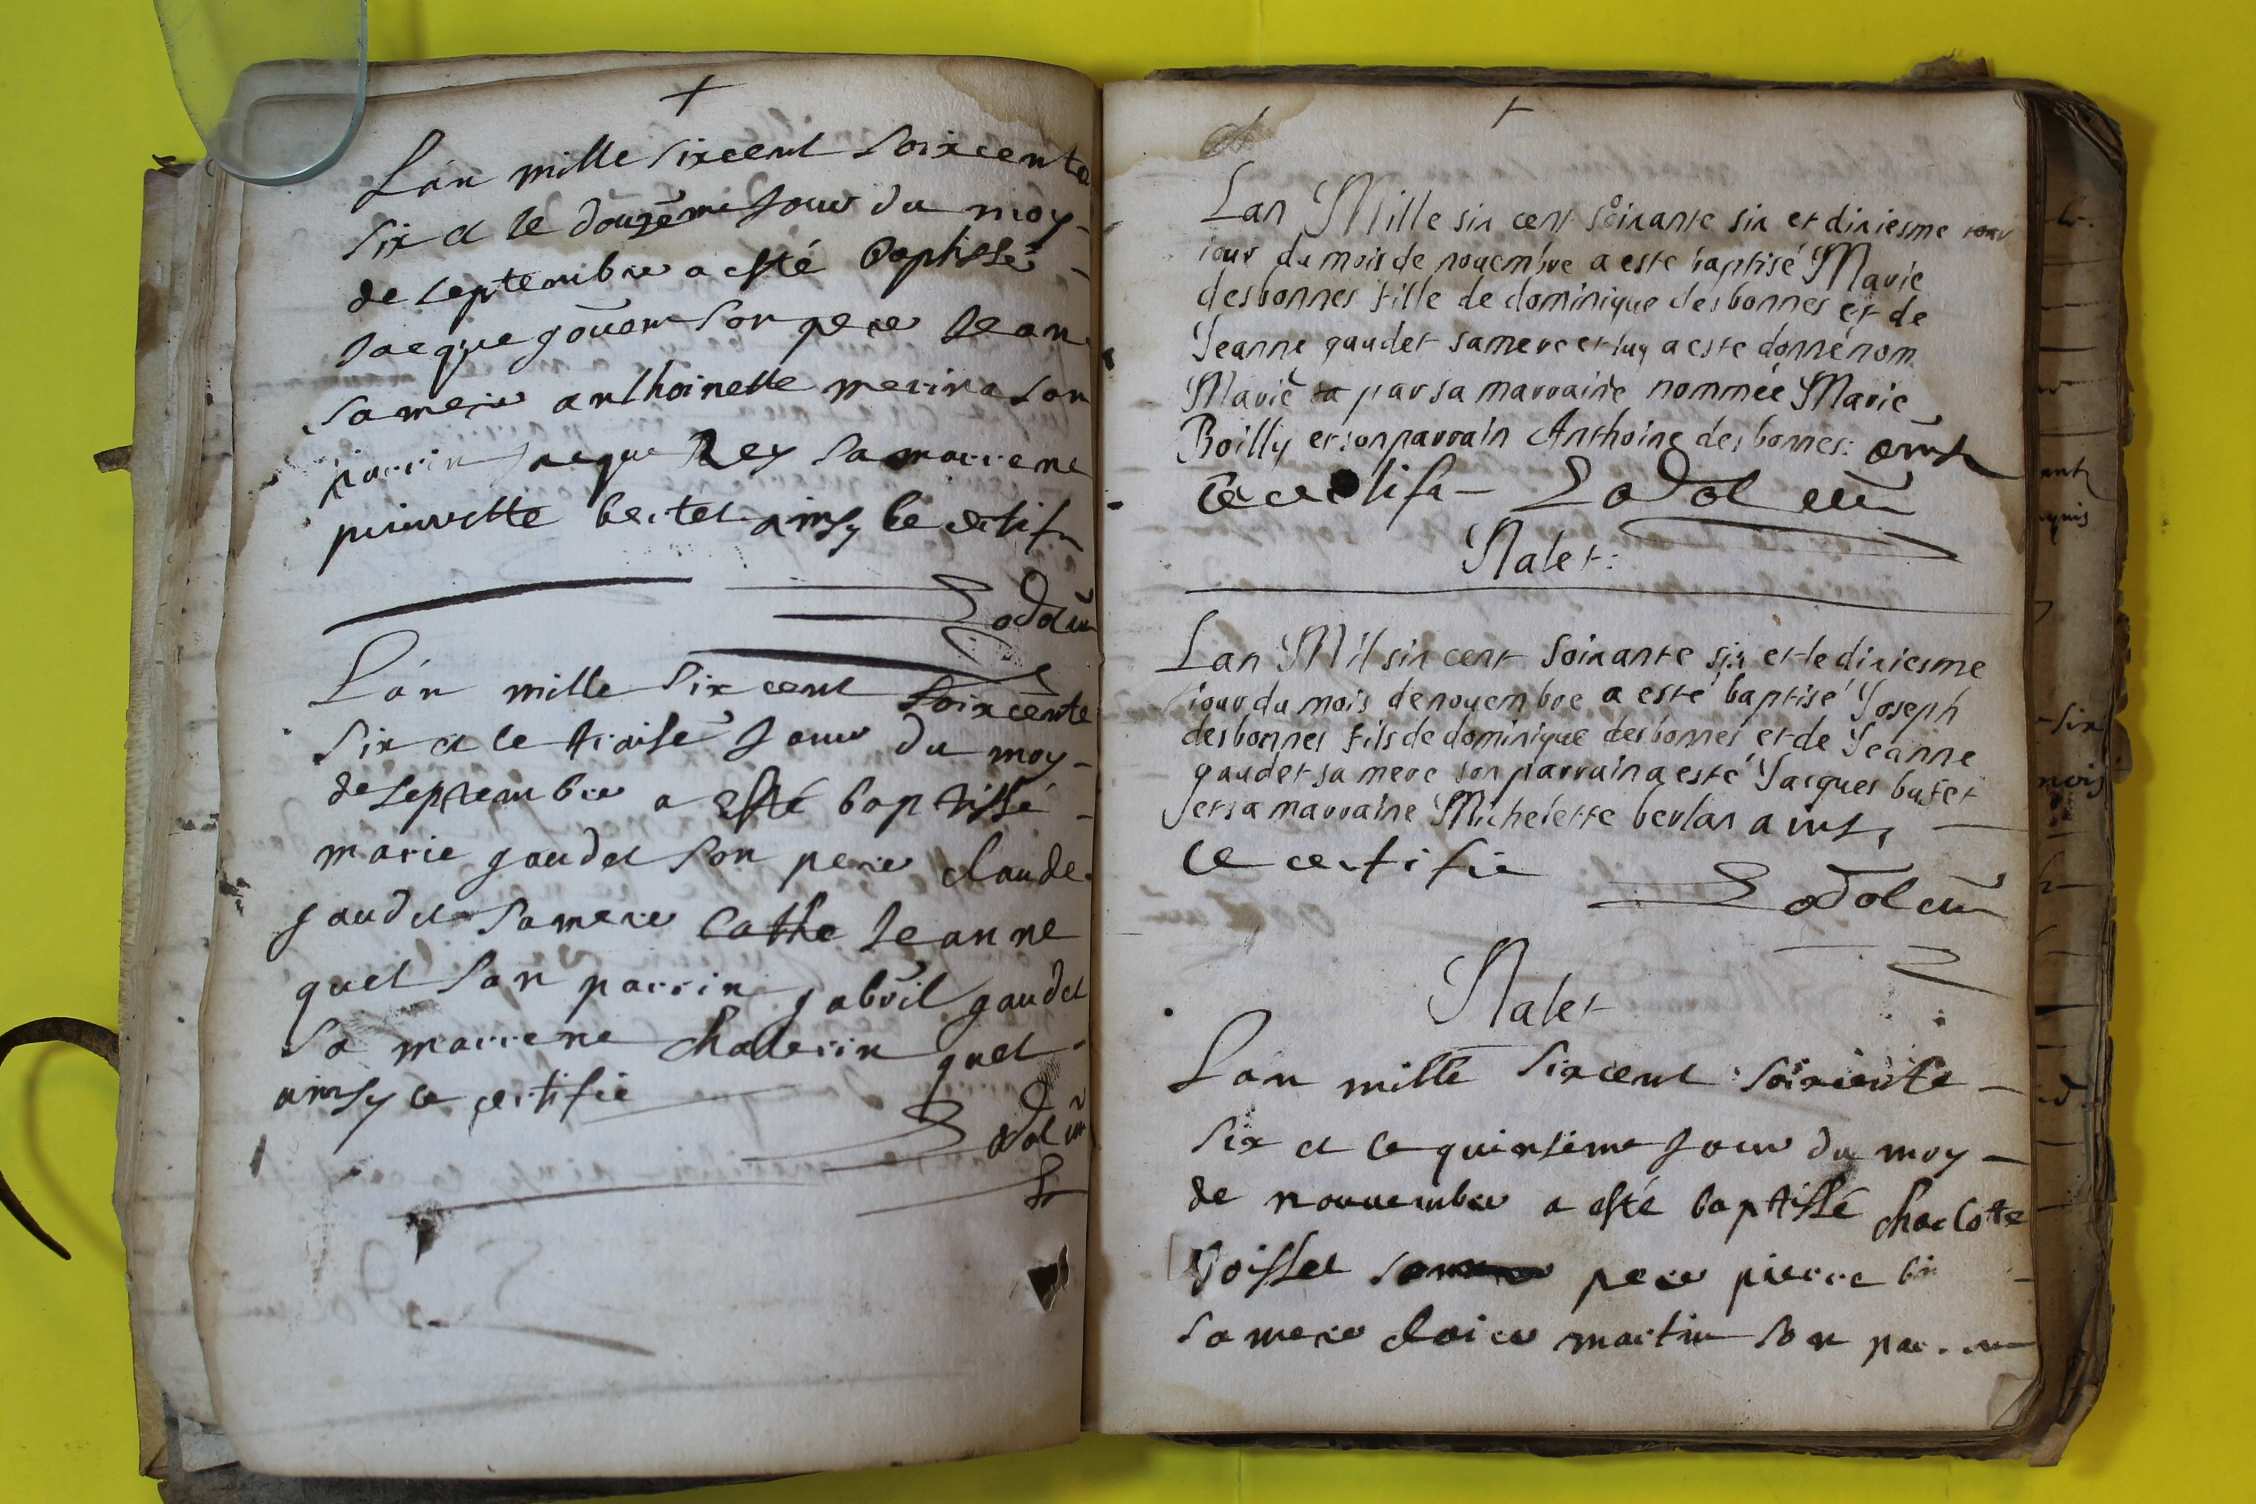 +
Lan mille sixcent soixcente
six et le douzeme Jour du moy
de septembre a esté Baptissé
Jacque gouem son pere Jean
sa mere anthoinette merina son
parrin Jacque Rey sa marrene
pierrette bertet ainsy le certifi
Lan mille sixcent soixcente
six et le traise Jour du moy
de septembre a esté baptissé
marie gaudet son pere claude
gaudet sa mere Cathe Jeanne
quet son parrin gabril gaudet
sa marrene chaterin quet
ainsy ce certifie
+
Lan Mille six cent soixante six et dixiesme iour
iour du mois de nouembre a este baptisé Marie
desbonnes fille de dominique desbonnes et de
Jeanne gaudet sa mere et luy a este donné nom
Marie par sa marraine nommée Marie
Boilly et son parrain Anthoine desbonnes
ce certifi
Nalet:
Lan Mil six cent soixante six et le dixiesme
iour du mois de nouembre a esté baptisé Joseph
desbonnes fils de dominique desbonnes et de Jeanne
gaudet sa mere son parrain a esté Jacques bufet
et sa marraine Michelette berlan
ce certifie
Nalet
Lan mille sixcent soixcente
six et le quinseme Jour du moy
de nouuembre a esté baptissé charlotte
Voisset pere pierre
sa mere claire martin son